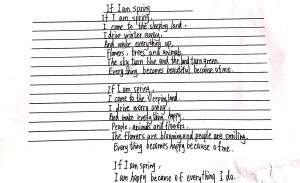 If I am spring
If I am spring,
I come to the sleeping land.
I drive winter away,
And wake everything up,
Flowers, trees and animals.
The sky turn blue and the land turn green.
Everything becomes beautiful because of me.
If I am spring,
I came to the sleeping land.
I drive worry away,
And make everything happy.
People, animals and flowers.
The flowers are blooming and people are smiling.
Everything becomes happy because of me.
If I am spring,
I am happy because of everything I do.